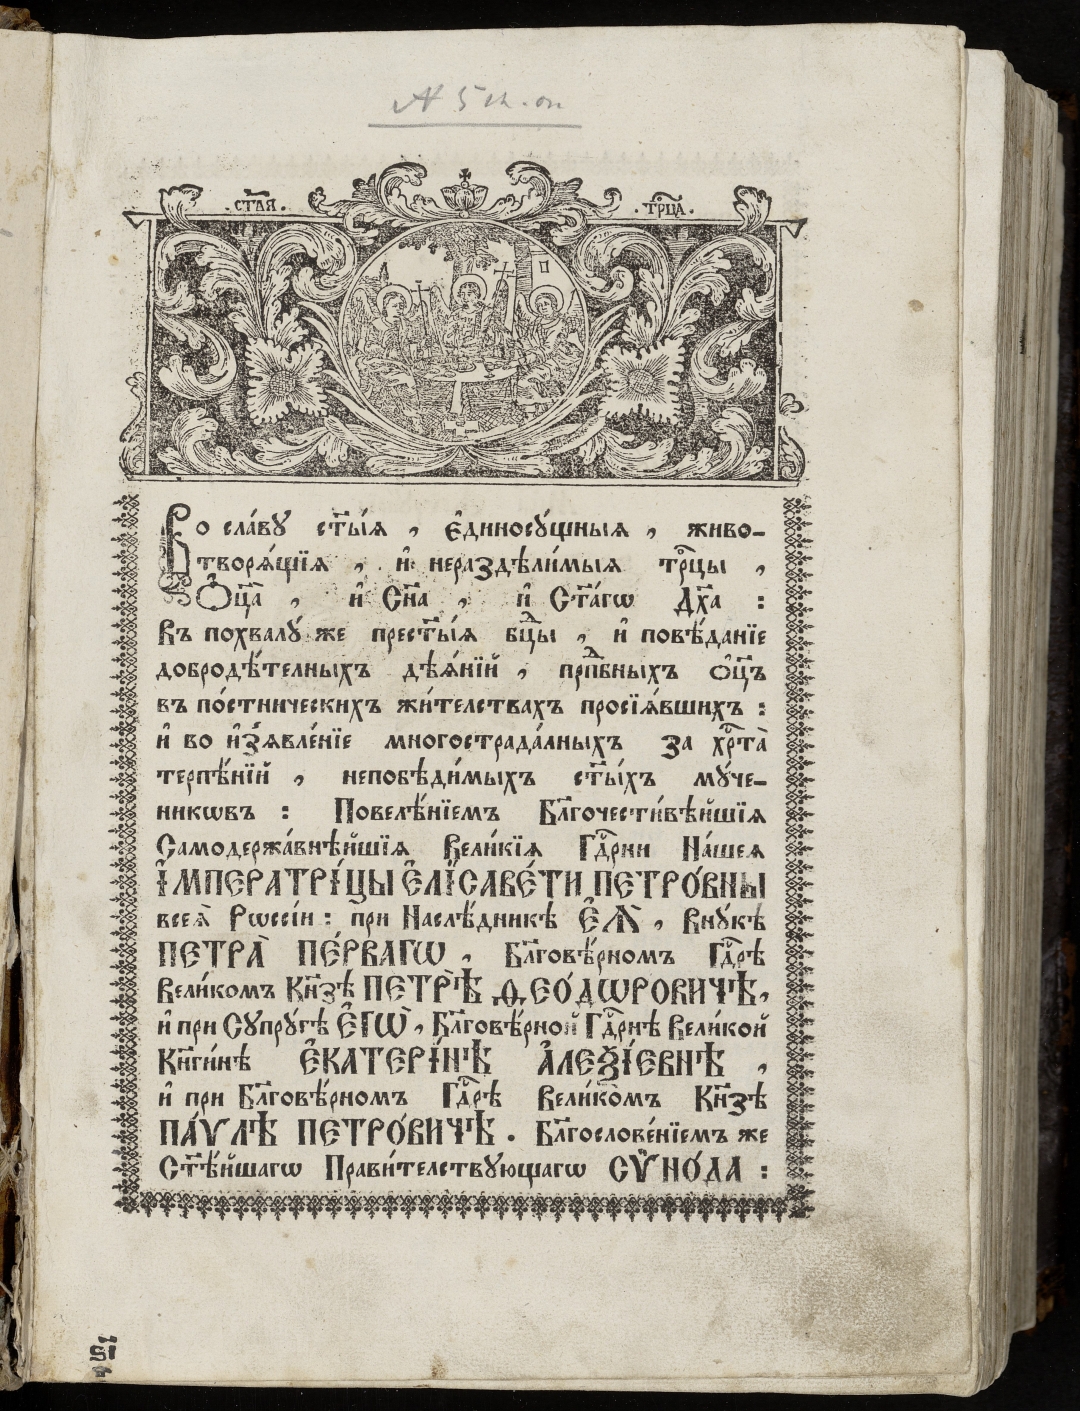 .СТ҃АѦ.
.ТРⷪ҇ЦА.
Во сла́вꙋ ст҃ы́ѧ , є҆диносꙋ́щныѧ , живо-
творѧ́щїѧ , и҆ нераздѣли́мыѧ трⷪ҇цы ,
Ѻ҆ц҃а̀ , и҆ Сн҃а , и҆ Ст҃а́гѡ Дх҃а :
Въ похвалꙋ́ же прест҃ы́ѧ бц҃ⷣы , и҆ повѣ́данїе
добродѣ́телныхъ дѣѧ́нїй , прпⷣбныхъ ѻ҆ц҃ъ
въ по́стническихъ жи́телствахъ просїѧ́вшихъ :
и҆ во и҆з̾ѧвле́нїе многострада́лныхъ за хрⷭ҇та̀
терпѣ́нїй , непобѣди́мыхъ ст҃ы́хъ мꙋ́че-
никѡвъ : Повелѣ́нїемъ Бл҃гочести́вѣйшїѧ
Самодержа́внѣйшїѧ Вели́кїѧ Гдⷭ҇рни На́шеѧ
І҆МПЕРАТРІ́ЦЫ Є҆ЛІСАВЕ́ТИ ПЕТРО́ВНЫ
всеѧ̀ Рѡссі́и : при Наслѣ́дникѣ Є҆Ѧ̀ , Внꙋ́кѣ
ПЕТРА̀ ПЕ́РВАГѠ , Бл҃говѣ́рномъ Гдⷭ҇рѣ
Вели́комъ Кн҃зѣ ПЕТРѢ̀ Ѳ҆ЕО́ДѠРОВИЧѢ,
и҆ при Сꙋпрꙋ́гѣ Є҆ГѠ̀ , Бл҃говѣ́рной Гдⷭ҇рнѣ Вели́кой
Кн҃ги́нѣ Є҆КАТЕРІ́НѢ А҆ЛЕѮІ́ЕВНѢ ,
и҆ при Бл҃говѣ́рномъ Гдⷭ҇рѣ Вели́комъ Кн҃зѣ
ПА́ѴЛѢ ПЕТРО́ВИЧѢ . Бл҃гослове́нїемъ же
Ст҃ѣ́йшагѡ Прави́телствꙋющагѡ СѴНО́ДА :
ѕ҃і